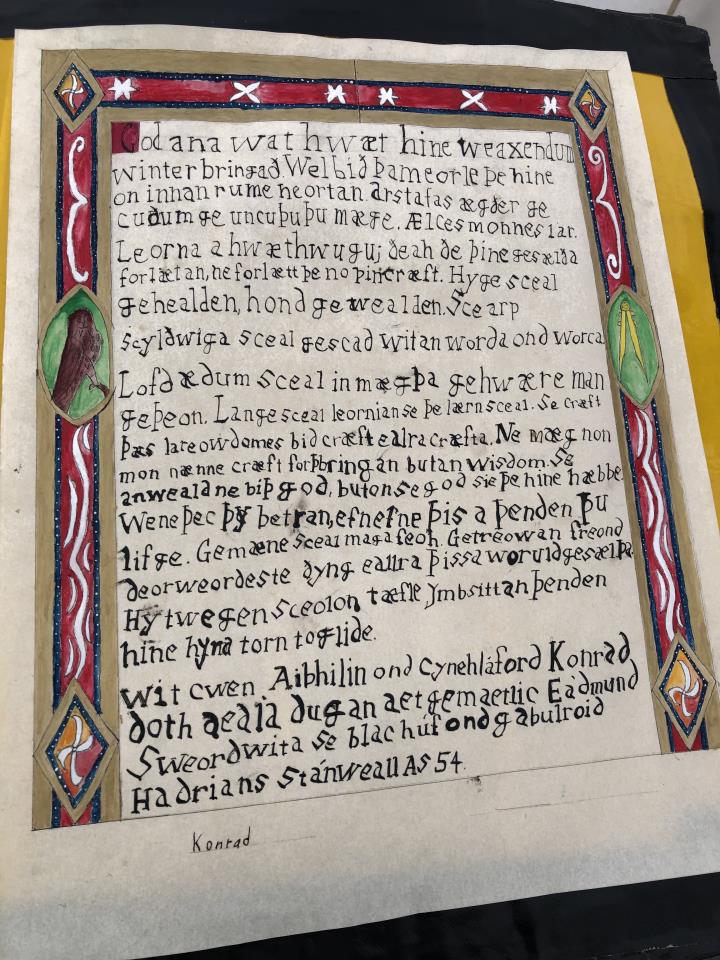 God ana wat hwæt hine weaxendum
winter bringað Wel bið þam eorle þe hine
on innan rume heortan. Arstafas ægðer ge
cuðum ge uncuþu þu mæge. Ælces monnes lar.
Leorna a hwæthwugu; ðeah ðe þine gesælða
forlætan, ne forlætt þe no þin cræft. Hyge sceal
gehealden, hond gewealden. Scearp
scyldwiga sceal gescad witan worda ond worca
Lofdædum sceal in mægþa gehwære man
geþeon. Lange sceal leornian se þe læran sceal. Se cræft
þæs lareowdomes bið cræft ealra cræfta. Ne mæg non
mon nænne cræft forþbringan butan wisdom. Se
anweald ne biþ god, buton se god sie þe hine hæbbe
Wene þec þy betran, efnefne þis a þenden þu
lifge. Gemæne sceal maga feoh. Getreowan freond
deorweordeste ðyng eallra þissa woruldgesælþa
Hy twegen sceolon tæfle ymbsittan þenden
hine hyra torn toglide.
Wit cwen Aibhilin ond cynehláford Konrad
doth aeala dugan aet gemaetlic Eádmund
Sweordwita se blac húf ond gabulroid
Hadrians Stánweall AS 54.
Konrad